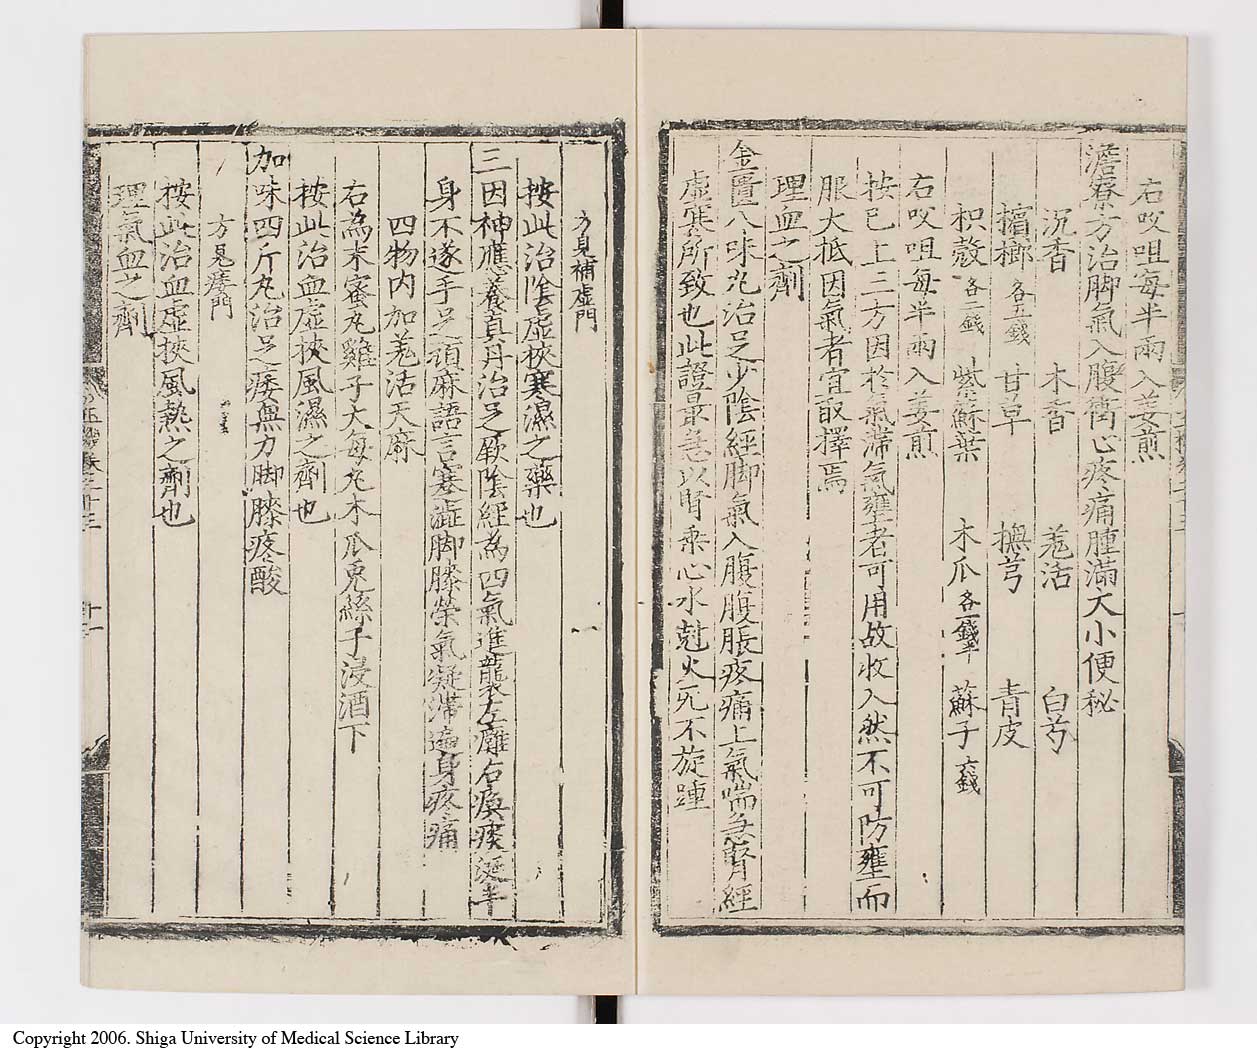 右㕮咀每半兩入姜煎
澹寮方治脚氣入腹衝心疼痛腫滿大小便秘
沉香 木香 羗活 白芍
檳榔各五錢 甘草 撫芎 青皮
枳殼各二錢 紫蘇葉 木瓜各一錢半 蘇子六錢
右㕮咀每半兩入姜煎
按已上三方因於氣滯氣壅者可用故收入然不可防壅而
服大抵因氣者宜敢擇焉
理血之劑
金匱八味丸治足少陰經脚氣入腹腹脹疼痛上氣喘急腎經
虛寒所致也此證最急以腎乘心水尅火死不旋踵
方見補虛門
按此治陰虛挾寒濕之藥也
三因神應養真丹治足厥陰經為四氣進襲左癱右瘓痰涎半
身不遂手足頑麻語言蹇澁脚膝榮氣凝滯遍身疼痛
四物內加羗活天麻
右為末蜜丸雞子大每丸木瓜兎絲子浸酒下
按此治血虛挾風濕之劑也
加味四斤丸治足痿無力脚膝疼酸
方見痿門
按此治血虛挾風熱之劑也
理氣血之劑
十一
Copyright 2006. Shiga University of Medical Science Library